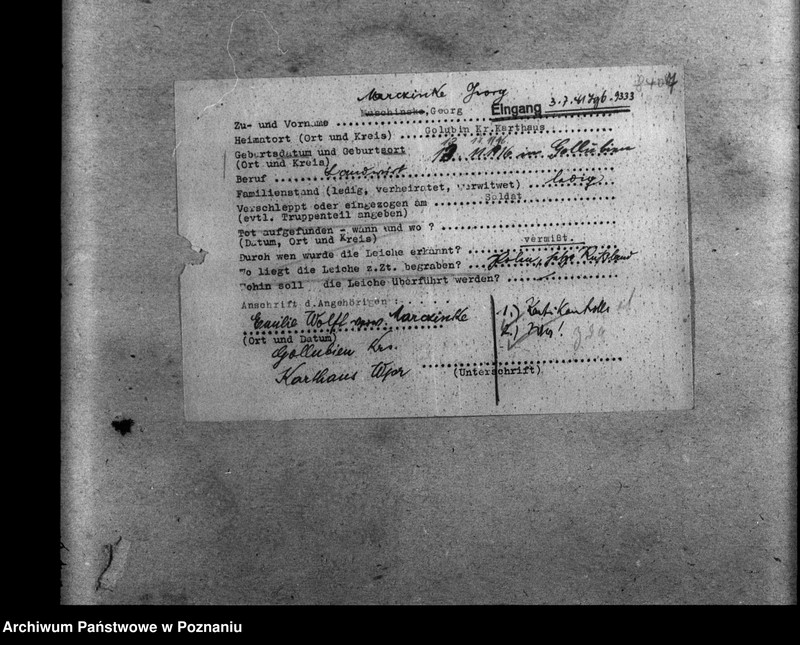 Marczinke Georg
Zu- und Vorname Muschinske, Georg Eingang 3.7.41 9333
Heimatort (Ort und Kreis) Golubin Kr. Karthaus
Geburtsdatum und Geburtsort 11.1916 in Gollubien
(Ort und Kreis)
Beruf Landwirt
Familienstand (ledig, verheiratet, verwitwet) ledig
Verschleppt oder eingezogen am Soldat
(evtl. Truppenteil angeben)
Tot aufgefunden - wann und wo ?
(Datum, Ort und Kreis)
Durch wen wurde die Leiche erkannt? vermißt.
Wo liegt die Leiche z.Zt. begraben? Rußland
Wohin soll die Leiche überführt werden?
Anschrift d. Angehörigen :
Emilie Wolff Marczinke
(Ort und Datum)
Gollubien Krs.
Karthaus Wpr
1.)
2.)
(Unterschrift)
Archiwum Państwowe w Poznaniu